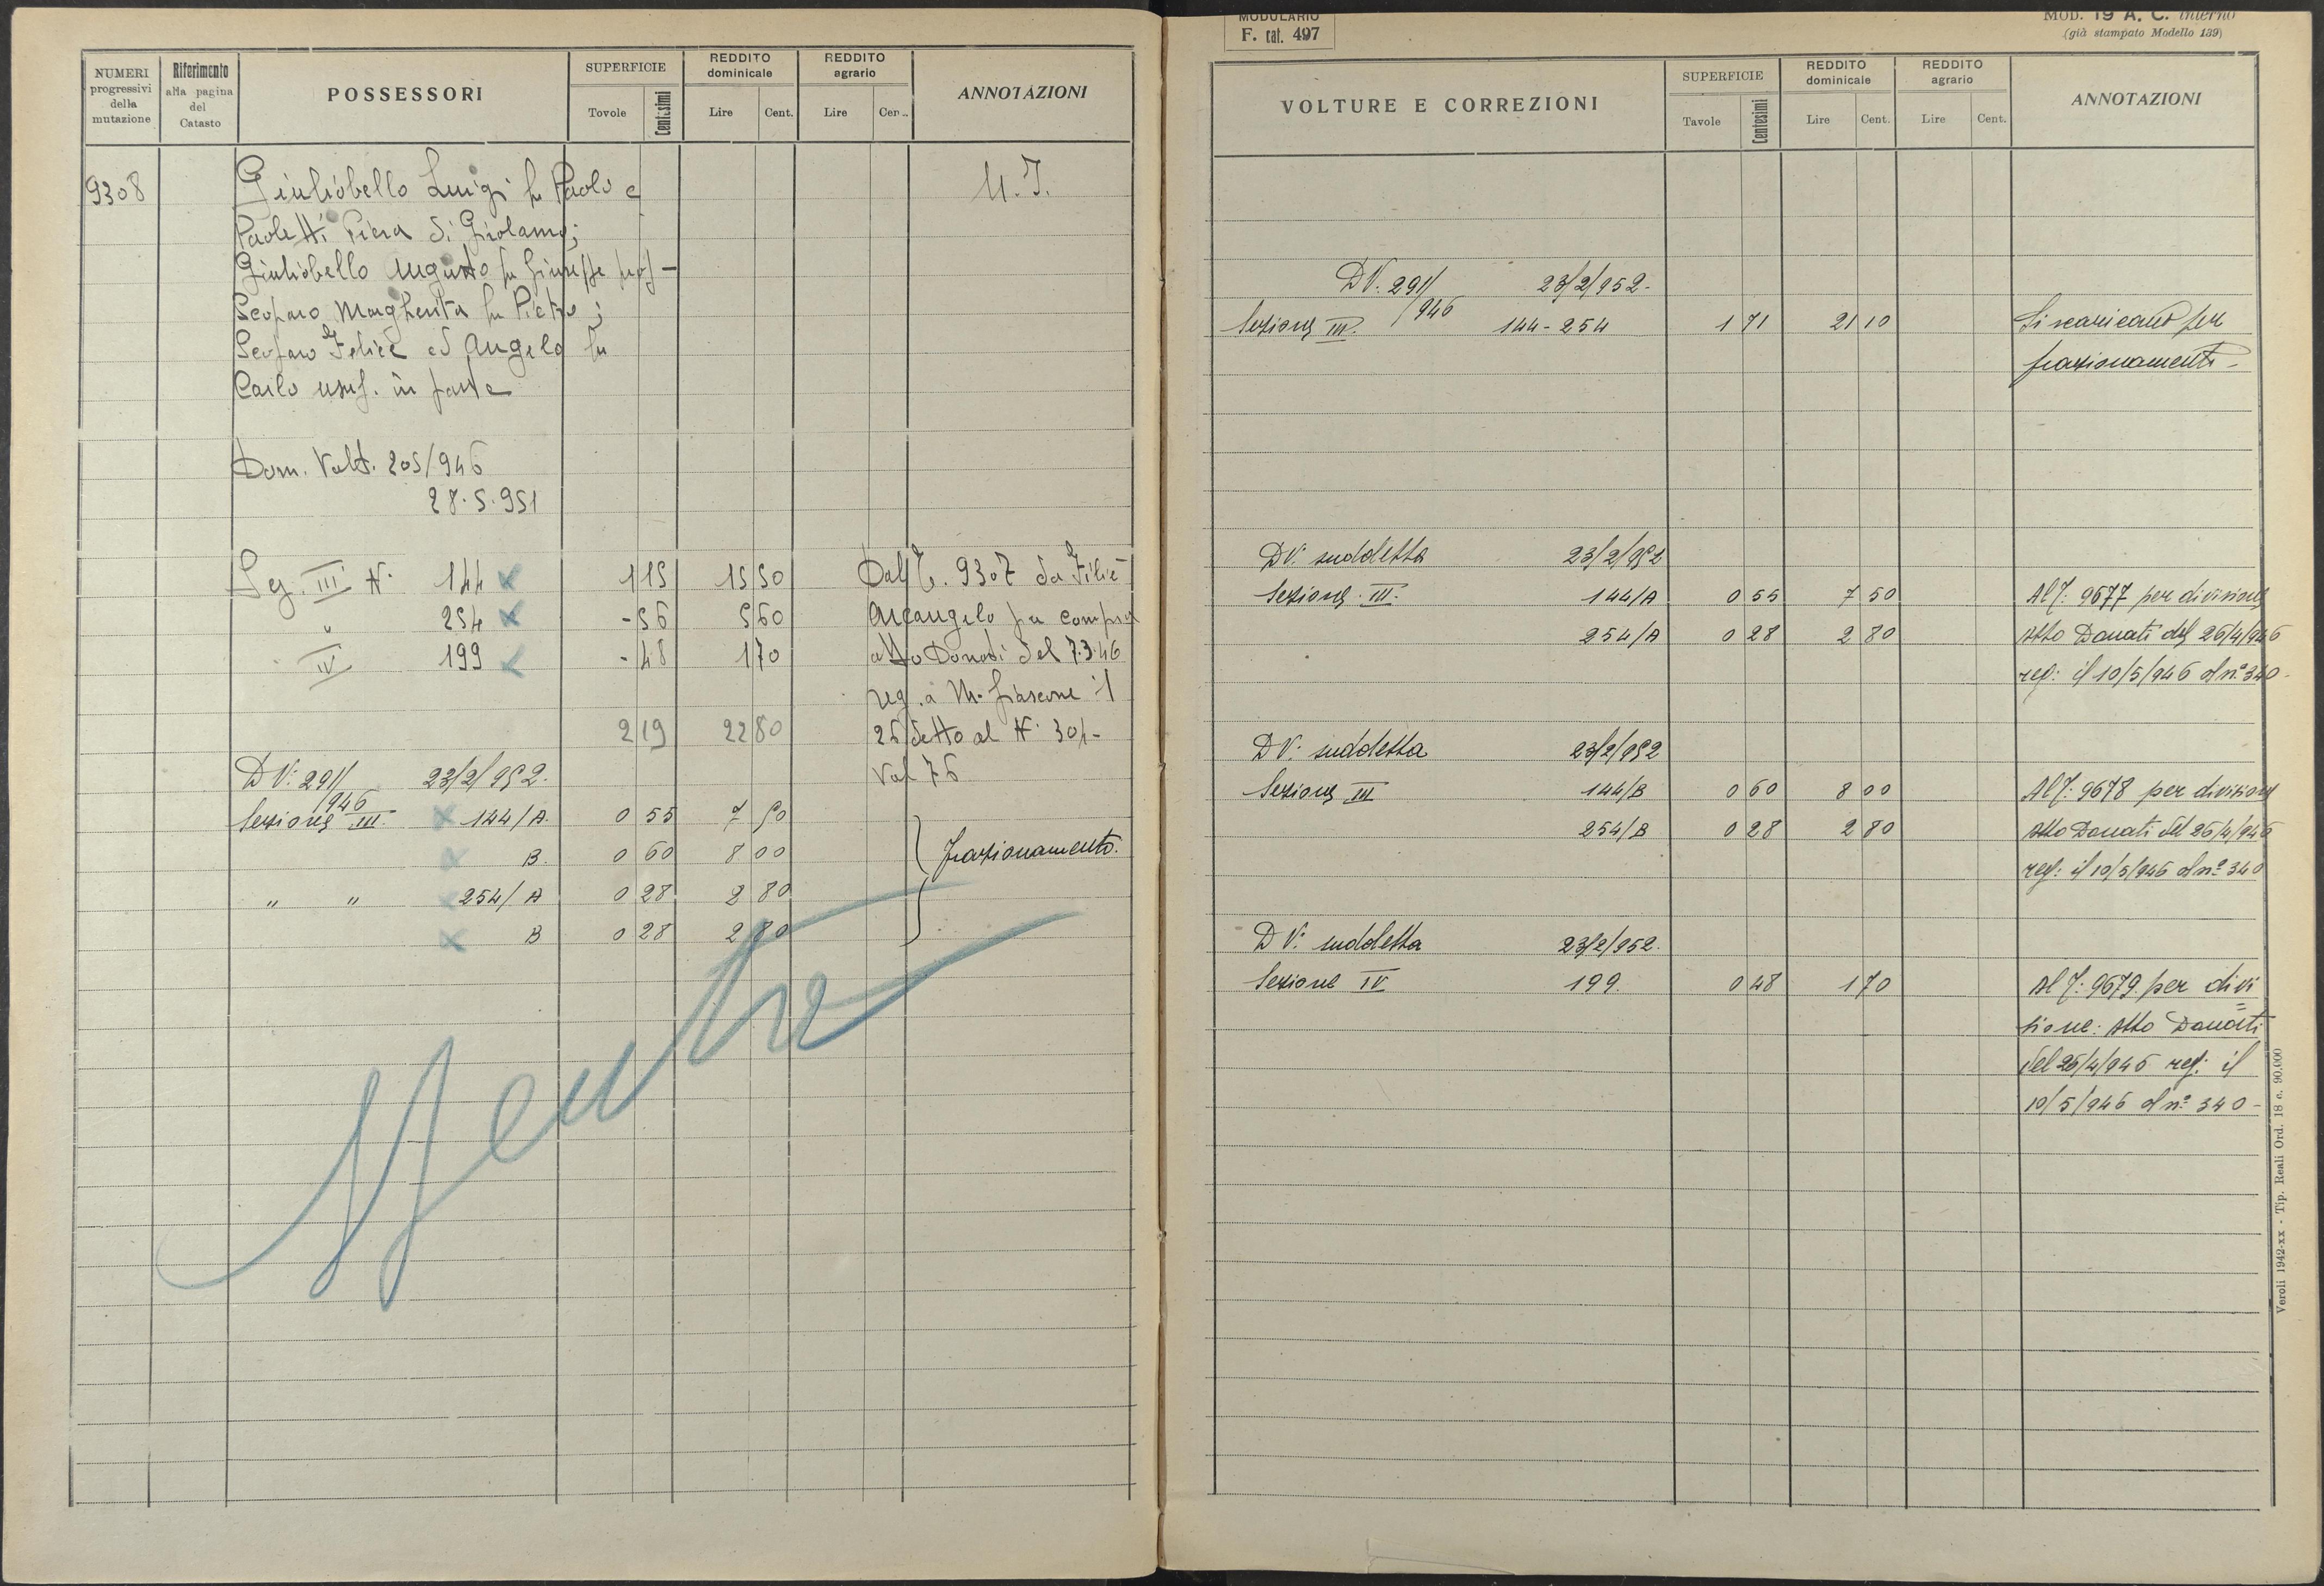 NUMERI progressivi della mutazione
Riferimento alla pagina del Catasto
POSSESSORI
SUPERFICIE
Tovole
Centesimi
REDDITO dominicale
Lire
Cent.
REDDITO agrario
Lire
Cen..
ANNOTAZIONI
9308
Giuliobello Luigi fu Paolo e
M.I.
Paoletti Piera di Girolamo;
Giuliobello Augusto fu Giuseppe
Scoparo Margherita fu Pietro;
Scoparo Felice ed Angelo fu
Carlo usuf. in parte
Dom. Volt. 205/946
28.5.951
Sez. III N. 144 1 15 15 50 Dall 9307 da Filie
" 254 - 56 5 60 Arcangelo per compra
IV 199 - 48 1 70 atto Donati del 7.3.46
reg. a M. fiascone il
2 19 22 80 26 detto al N. 301-
Vol 76
DV: 291/946 23/2/952.
Sezione III. 144/A. 0 55 7 50
B. 0 60 8 00 frazionamento.
" " 254/A 0 28 2 80
B 0 28 2 80
MODULARIO
F. cat. 497
MOD. 19 A. C. interno
(già stampato Modello 139)
VOLTURE E CORREZIONI
SUPERFICIE
Tavole
Centesimi
REDDITO dominicale
Lire
Cent.
REDDITO agrario
Lire
Cent.
ANNOTAZIONI
DV. 291/946 23/2/952.
Sezione III. 144-254 1 71 21 10 Si scaricano per
frazionamento-
DV: suddetta 23/2/952
Sezione III. 144/A 0 55 7 50 Al P: 9677 per divisione
254/A 0 28 2 80 Atto Donati del 26/4/946
reg: il 10/5/946 al n° 340-
DV: suddetta 23/2/952
Sezione III 144/B 0 60 8 00 Al P: 9678 per divisione
254/B 0 28 2 80 Atto Donati del 26/4/946
reg: il 10/5/946 al n° 340
DV: suddetta 23/2/952.
Sezione IV 199. 0 48 1 70 Al P: 9679. per divi
sione: Atto Donati
del 26/4/946 reg: il
10/5/946 al n° 340-
Veroli 1942-xx - Tip. Reali Ord. 18 c. 90,000